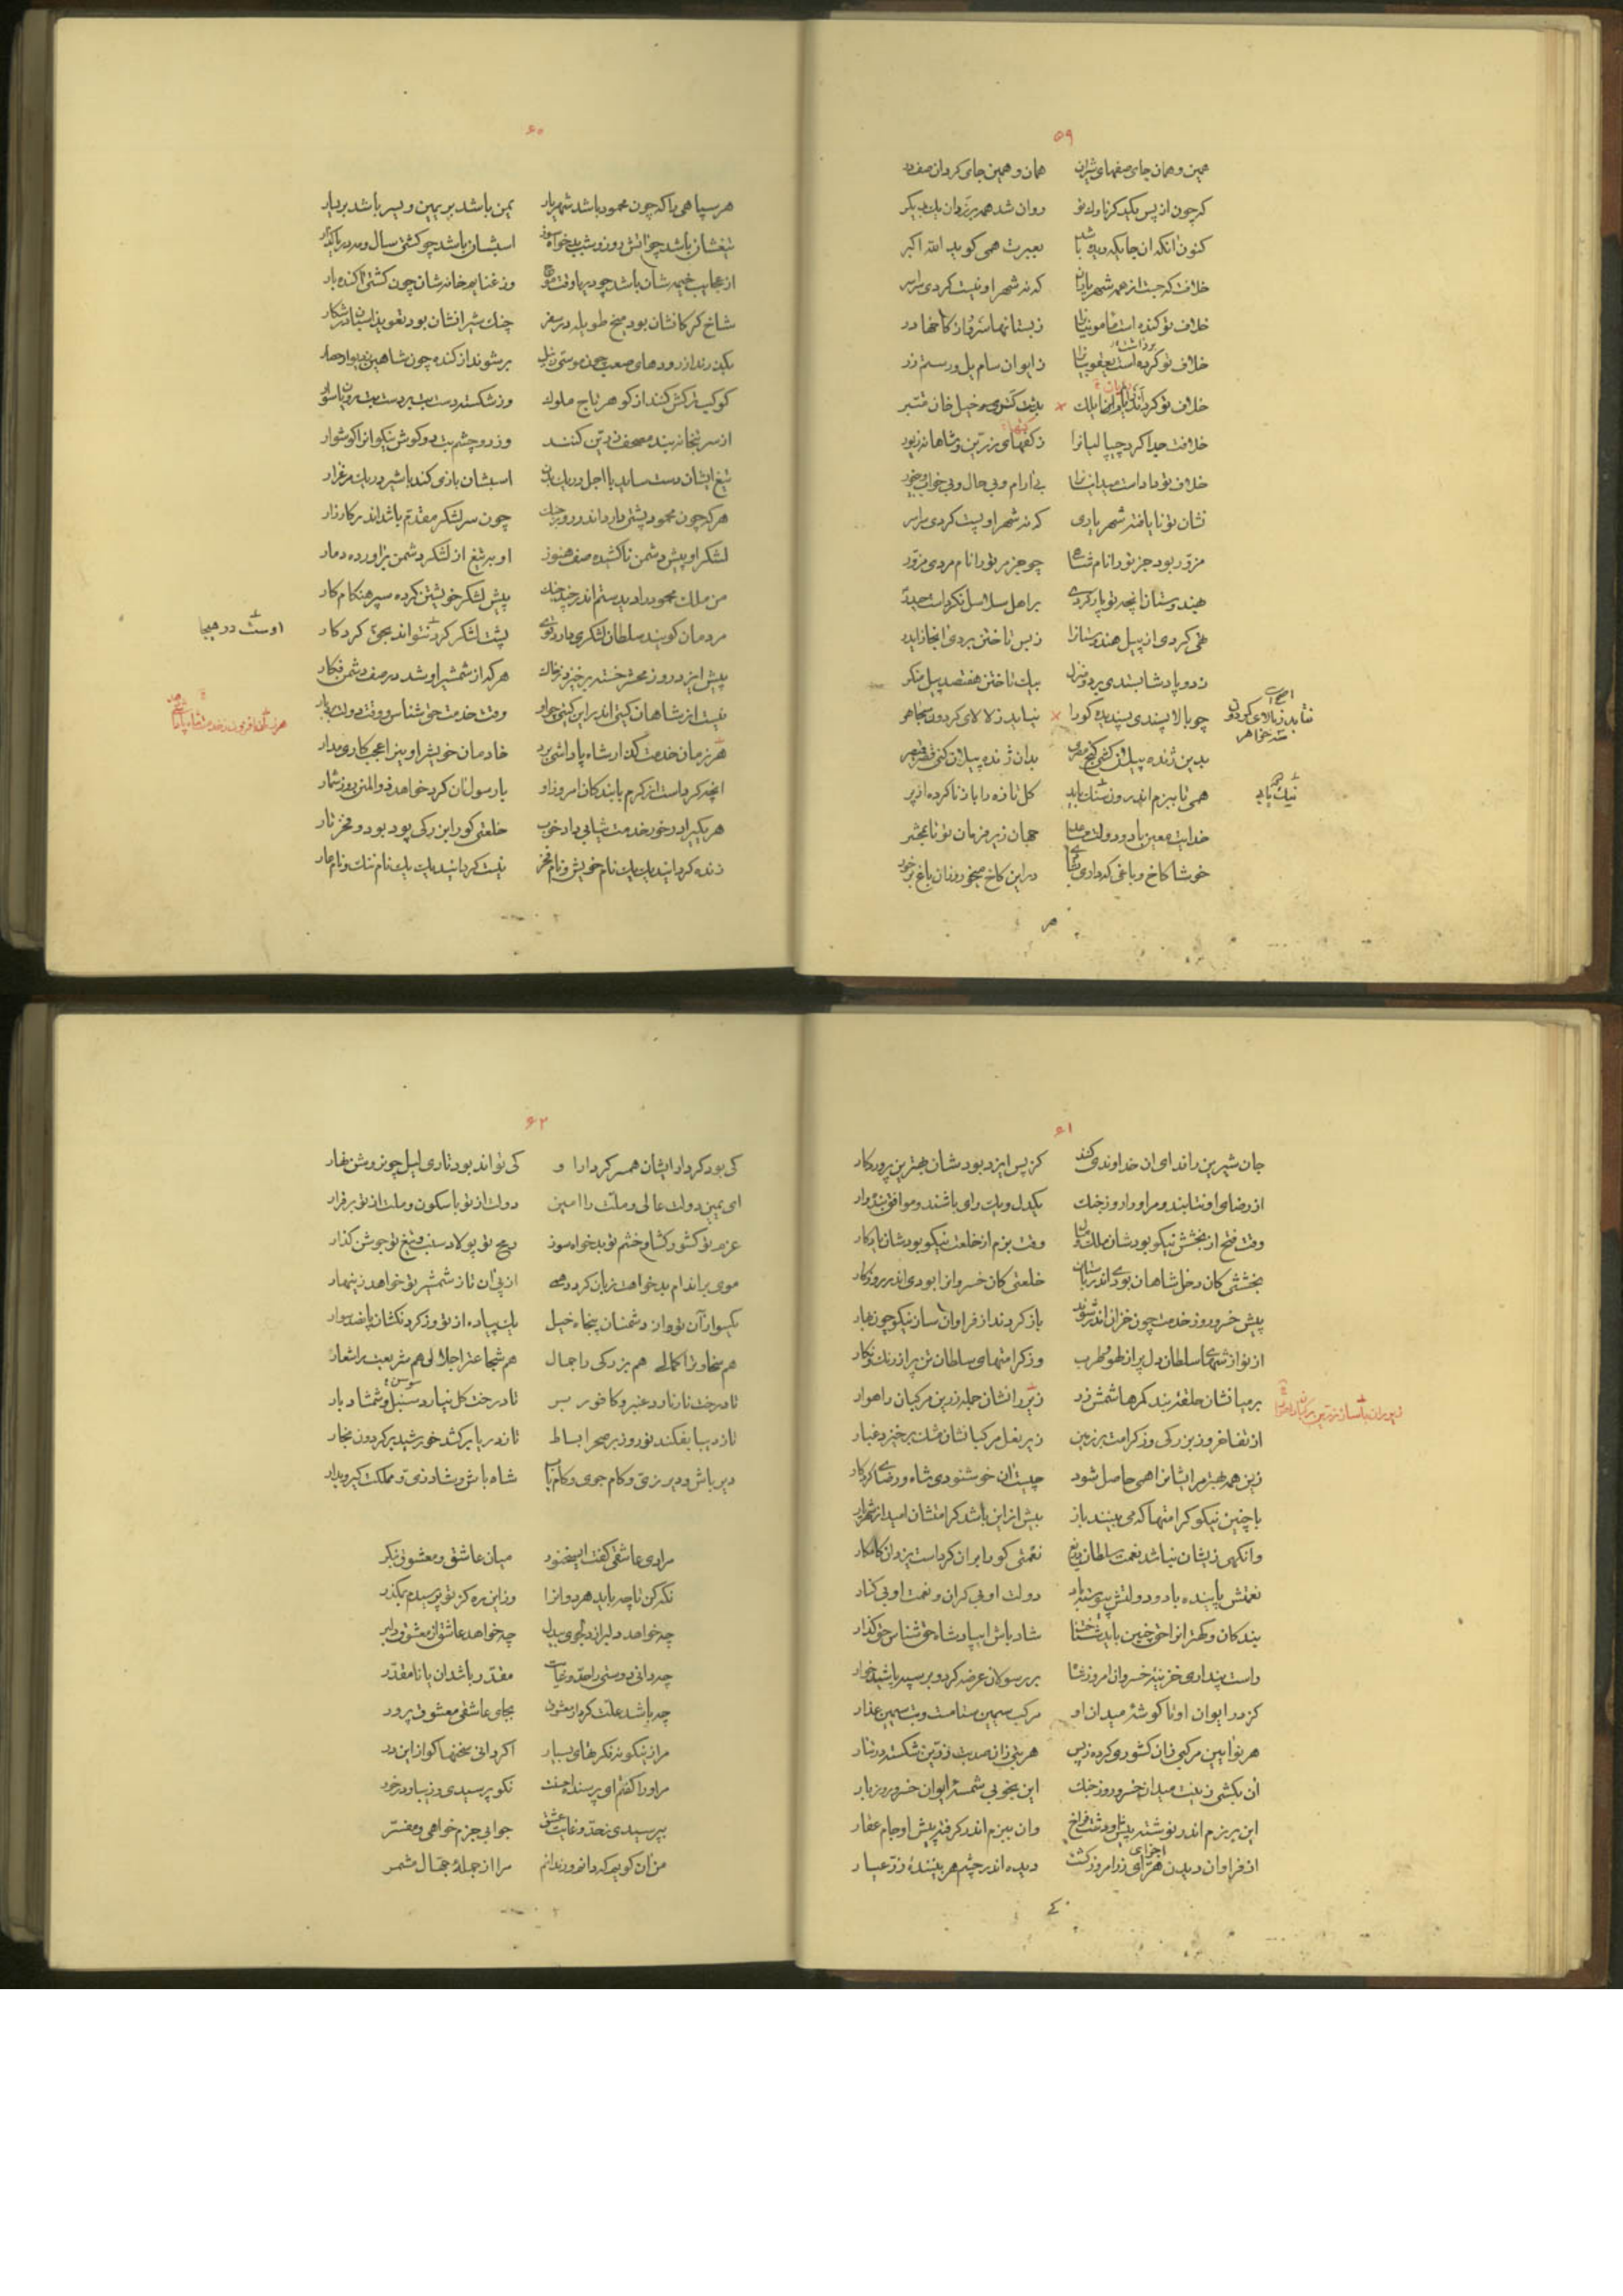 ۵۹
همین و همان جای صفهای شیران همان و همین جای کردان صفدر
که چون از پس یکدیگر روان شد همه
کنون آنکه آن جایکه دیده باشد بعبرت همی کوید الله اکبر
خلافت که جست از همه شهریاران که نه شهر او نیست کردی سراسر
خلاف تو کنده است مامونیانرا ز بستانها سرو وز کاخها در
خلاف تو کرده است یعقوبیانرا ز ایوان سام یل و رستم زر
برداشت
خلافت جدا کرد چیپالیانرا ز کتهای زرین و شاهانه زیور
خلاف تو دادست بی آرام و بی حال و بی خواب و بی خور
نشان تو نایافته شهریاری که نه شهر او پست کردی سراسر
مزور بود جز تو را نام شاها چو جز مر تو را نام مردی مزور
بهندوستان آنچه تو پار کردی بر اهل سلاسل نکردست حیدر
تهی کردی از پیل هندوستانرا ز بس تاختن بردی آنجا
ز دو پادشا بستدی بیک تاختن هفتصد پیل منکر
چو بالا پسندی پسندیده کو را نیاید ز بالای کردون
بدین ژنده پیلان بدان ژنده پیلان کنی قصر قیصر
همی تا ببزم اندرون کل تازه را باز ناکرده از پر
خدایت معین باد و دولت مساعد جهان زیر فرمان تو تا بمحشر
خوشا کاخ و باغی که داری در این کاخ می خور وزان باغ بر خور
هر
۶۰
هر سپاهی را که چون محمود باشد شهریار یمن باشد بر یمین و یسر باشد بر یسار
تیغشان باشد چو آتش روز و شب بدخواه سوز اسبشان باشد چو کشتی سال و مه دریاکذار
از عجایب خیمه شان باشد چو دریا وقت موج وز غنایم خانه شان چون کشتی آکنده بار
شاخ کرکانشان بود میخ طویله در سفر چنک شیرانشان بود تعویذ اسبان در شکار
بکذرند از رودهای صعب چون موسی ز نیل برشوند از کنده چون شاهین بدیوار حصار
کوکب ترکش کنند از کوهر تاج ملوک وز شکسته دست بت بر دست بت رویان سوار
از سر بتخانه بند مصحف زرین کنند وز دو چشم بت دو کوش نیکوانرا کوشوار
تیغ ایشان دست ساید با اجل در یک بدن اسبشان بازی کند با شیر در یک مرغزار
هر که چون محمود پشتی دارد اندر روز جنک چون سر لشکر مقدم باشد اندر کارزار
لشکر او پیش دشمن ناکشیده صف هنوز او به تیغ از لشکر دشمن برآورده دمار
من ملک محمود را دیدستم اندر چند جنک پیش لشکر خویشتن کرده سپر هنکام کار
مردمان کویند سلطان لشکری دارد قوی پشت لشکر کرد نتواند بجز کردکار
اوست در هیجا
پیش ایزد روز محشر خسته برخیزد ز خاک هر که از شمشیر او شد در صف دشمن فکار
نیست از شاهان کیتی اندر این کیتی چو او وقت خدمت حق شناس و وقت دولت
هر زمان خدمت کذار شاه پاداشی برد خادمان خویش او بین اعجب کاری مدار
آنچه کردست از کرم با بندکان امروز او با رسولان کرد خواهد ذوالمنن روز شمار
هر یکی را در خور خدمت ثیابی داد خوب خلعتی کو را بزرکی پود بود و فخر تار
زنده کردانید یک یک نام خویش و نام فخر نیست کردانید یک یک نام ننک و نام عار
۶۱
جان شیرین را فدای آن خداوندی کنند کز پس ایزد بودشان بهترین پروردکار
از رضای او نتابند و مر او را روز جنک یکدل و یک رای باشند و موافق بنده وار
وقت فتح از بخشش نیکو بودشان ملک و مال وقت بزم از خلعت نیکو بودشان یادکار
بخششی کان دخل شاهان بودی اندر باستان خلعتی کان خسروانرا بودی اندر روزکار
پیش خسرو روز خدمت چون خزان اندر شوند باز کردند از فراوان ساز نیکو چون بهار
از نوازشهای سلطان دل پر از لهو و طرب وز کرامتهای سلطان تن پر از رنک و نکار
بر میانشان حلقه بند کمرها شمش زر زیر رانشان جمله زرین مرکبان راهوار
از تفاخر وز بزرکی وز کرامت بر زمین زیر نعل مرکبانشان مشک برخیزد غبار
زین همه بهتر مر ایشانرا همی حاصل شود چیست آن خوشنودی شاه و رضای کردکار
با چنین نیکو کرامتها که می بینند باز بیش از این باشد کرامتشان امید از شهریار
وانکهی زیشان نباشد نعمت سلطان دریغ نعمتی کو را بر آن کردست یزدان کامکار
نعمتش پاینده باد و دولتش پیوسته باد دولت او بی کران و نعمت او بی کنار
بندکان و کهترانرا حق چنین باید شناخت شاد باش ای پادشاه حق شناس حق کذار
راست پنداری خزینه خسروان امروز شاه بر رسولان عرضه کرد و بر سپه پاشید خوار
کز در ایوان او تا کوشه میدان او مرکب سیمین ستامست و بت سیمین عذار
هر نوآیین مرکبی زان کشوری کرده ز پس هر بتی زان صد بت زرین شکسته در بهار
آن بکشی زینت میدان خسرو روز جنک این بخوبی شمسه ایوان خسرو روز بار
وان ببزم اندر کرفته پیش او جام عقار
از فراوان دیدن هرای زر امروز کشت دیده اندر چشم هر بیننده زر عیار
کی
۶۲
کی بود کردار ایشان همسر کردار او کی تواند بود تاری لیل چون روشن نهار
ای یمین دولت عالی و ملت را امین دولت از تو باسکون و ملت از تو برقرار
عزم تو کشور کشا و خشم تو بدخواه سوز رمح تو پولاد سنب و تیغ تو جوشن کذار
موی بر اندام بدخواهت زبان کردد همی از پی آن تا ز شمشیر تو خواهد زینهار
یک سوار از آن تو وز دشمنان پنجاه خیل یک پیاده از تو وز کردنکشان پانصد سوار
هم سخا را کمالی هم بزرکی را جمال هم شجاعت را جلالی هم شریعت را شعار
تا درخت نار نارد عنبر و کافور بر تا درخت کل نیارد سنبل و شمشاد بار
سوسن
تا ز دیبا بفکند نوروز بر صحرا بساط تا ز دریا برکشد خورشید بر کردون بخار
دیر باش و دیر زی و کام جوی و کام یاب شاه باش و شاد زی و مملکت کیر و بدار
مر ای عاشقی کفت ای سخنور میان عاشق و معشوق بنکر
نکه کن تا چه باید هر دوانرا وز این ره کز تو پرسیدم بمکذر
چه خواهد دلبر از دلجوی بیدل چه خواهد عاشق از معشوق دلبر
چه دانی دوستی را حد و غایت مقدر باشد آن یا نامقدر
چه باشد علت کردار معشوق بجای عاشق معشوق پرور
مر از نیکو نکر فکرتهای بسیار اکر دانی سخنها کو از این در
مر او را کفتم ای پرسنده احسنت نکو پرسیدی و زیبا و در خور
بپرسیدی ز حد و غایت عشق جوابی جزم خواهی و مفسر
من آن کویم که دانم ور ندانم مرا از جمله جهال مشمر